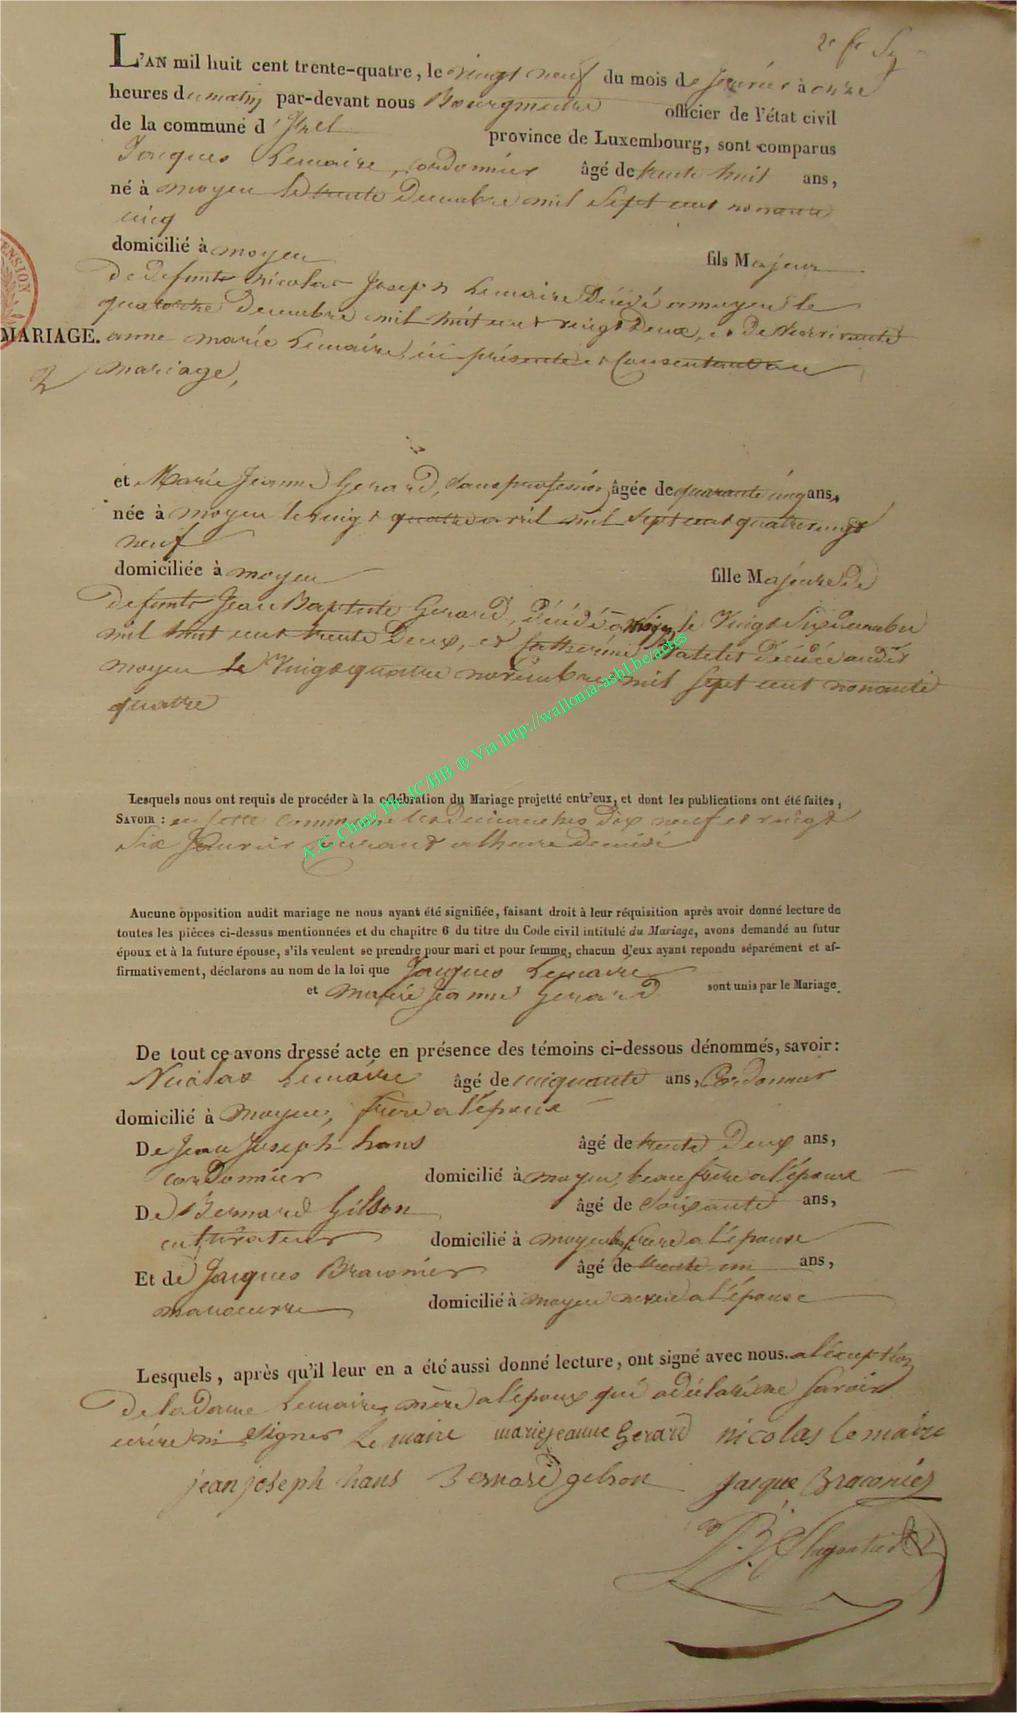 2e
L'AN mil huit cent trente-quatre, le vingt neuf du mois de janvier à onze
heures du matin par-devant nous Bourgmestre officier de l'état civil
de la commune d'Izel province de Luxembourg, sont comparus
Jacques Lemaire, cordonnier âgé de trente huit ans,
né à moyen le trente Decembre mil Sept cent nonante
cinq
domicilié à moyen fils Majeur
de Defunts nicolas Joseph Lemaire Décédé a moyen le
quatorze Decembre mil huit cent vingt Deux, et De
MARIAGE. anne marie Lemaire, ici présente et Consentant au
2 mariage,
et Marie Jeanne Gerard, sans profession, âgée de quarante cinq ans,
née à moyen le vingt quatre avril mil sept cent quatre vingt
neuf
domiciliée à moyen fille Majeure De
defunts Jean Baptiste Gerard, Décédé a moyen le Vingt Six Decembre
mil huit cent trente Deux, et Catherine Décédée audit
moyen le Vingt quatre novembre mil sept cent nonante
quatre
Lesquels nous ont requis de procéder à la célébration du Mariage projetté entr'eux, et dont les publications ont été faites,
SAVOIR : en cette commune les Dimanches Dix neuf et vingt
Six Janvier courant a l'heure De midi
A.C. Chiny Ph. IC/HB ® Via http://wallonia-asbl.be/actes
Aucune opposition audit mariage ne nous ayant été signifiée, faisant droit à leur réquisition après avoir donné lecture de
toutes les pièces ci-dessus mentionnées et du chapitre 6 du titre du Code civil intitulé du Mariage, avons demandé au futur
époux et à la future épouse, s'ils veulent se prendre pour mari et pour femme, chacun d'eux ayant repondu séparément et af-
firmativement, déclarons au nom de la loi que Jacques Lemaire
et marie Jeanne Gerard sont unis par le Mariage.
De tout ce avons dressé acte en présence des témoins ci-dessous dénommés, savoir:
Nicolas Lemaire âgé de cinquante ans, Cordonnier
domicilié à moyen, frère a l'époux
De Jean Joseph hans âgé de trente Deux ans,
cordonnier domicilié à moyen, beau frère a l'époux
De Bernard Gilson âgé de Soixante ans,
cultivateur domicilié à moyen frère a l'épouse
Et de Jacques Braconier âgé de trente un ans,
manoeuvre domicilié à moyen neveu a l'épouse
Lesquels, après qu'il leur en a été aussi donné lecture, ont signé avec nous. a l'exception
De la Dame Lemaire, mère a l'époux qui a déclaré ne Savoir
écrire ni Signer Le maire marie jeanne Gerard nicolas le maire
jean joseph hans Bernard gilson Jacque Braconier